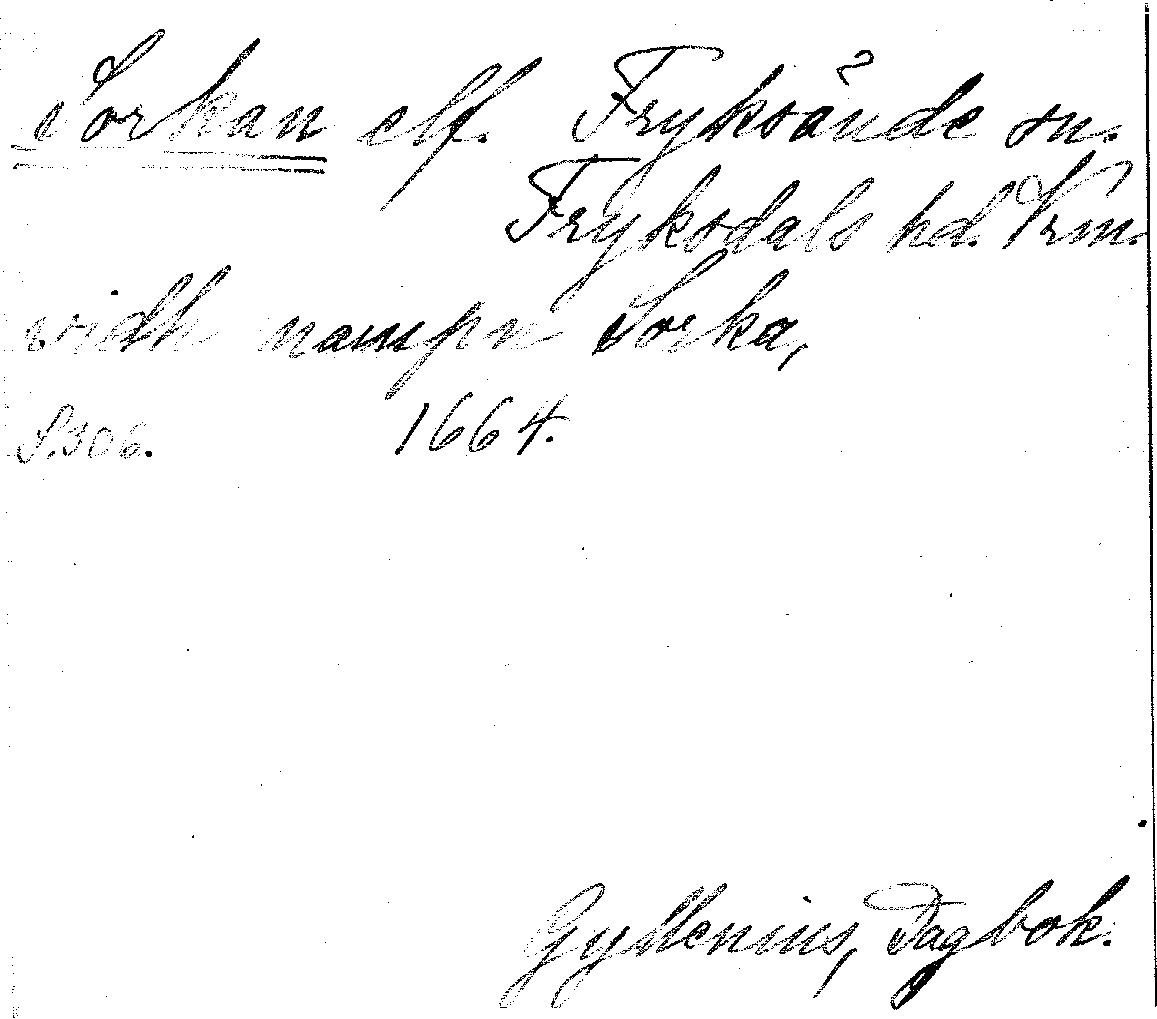 Sorkan elf. Fryksände sn.
Fryksdals hd. Vrm.
widh nampn Sorka,
S.306. 1664.
Gyllenius, Dagbok.